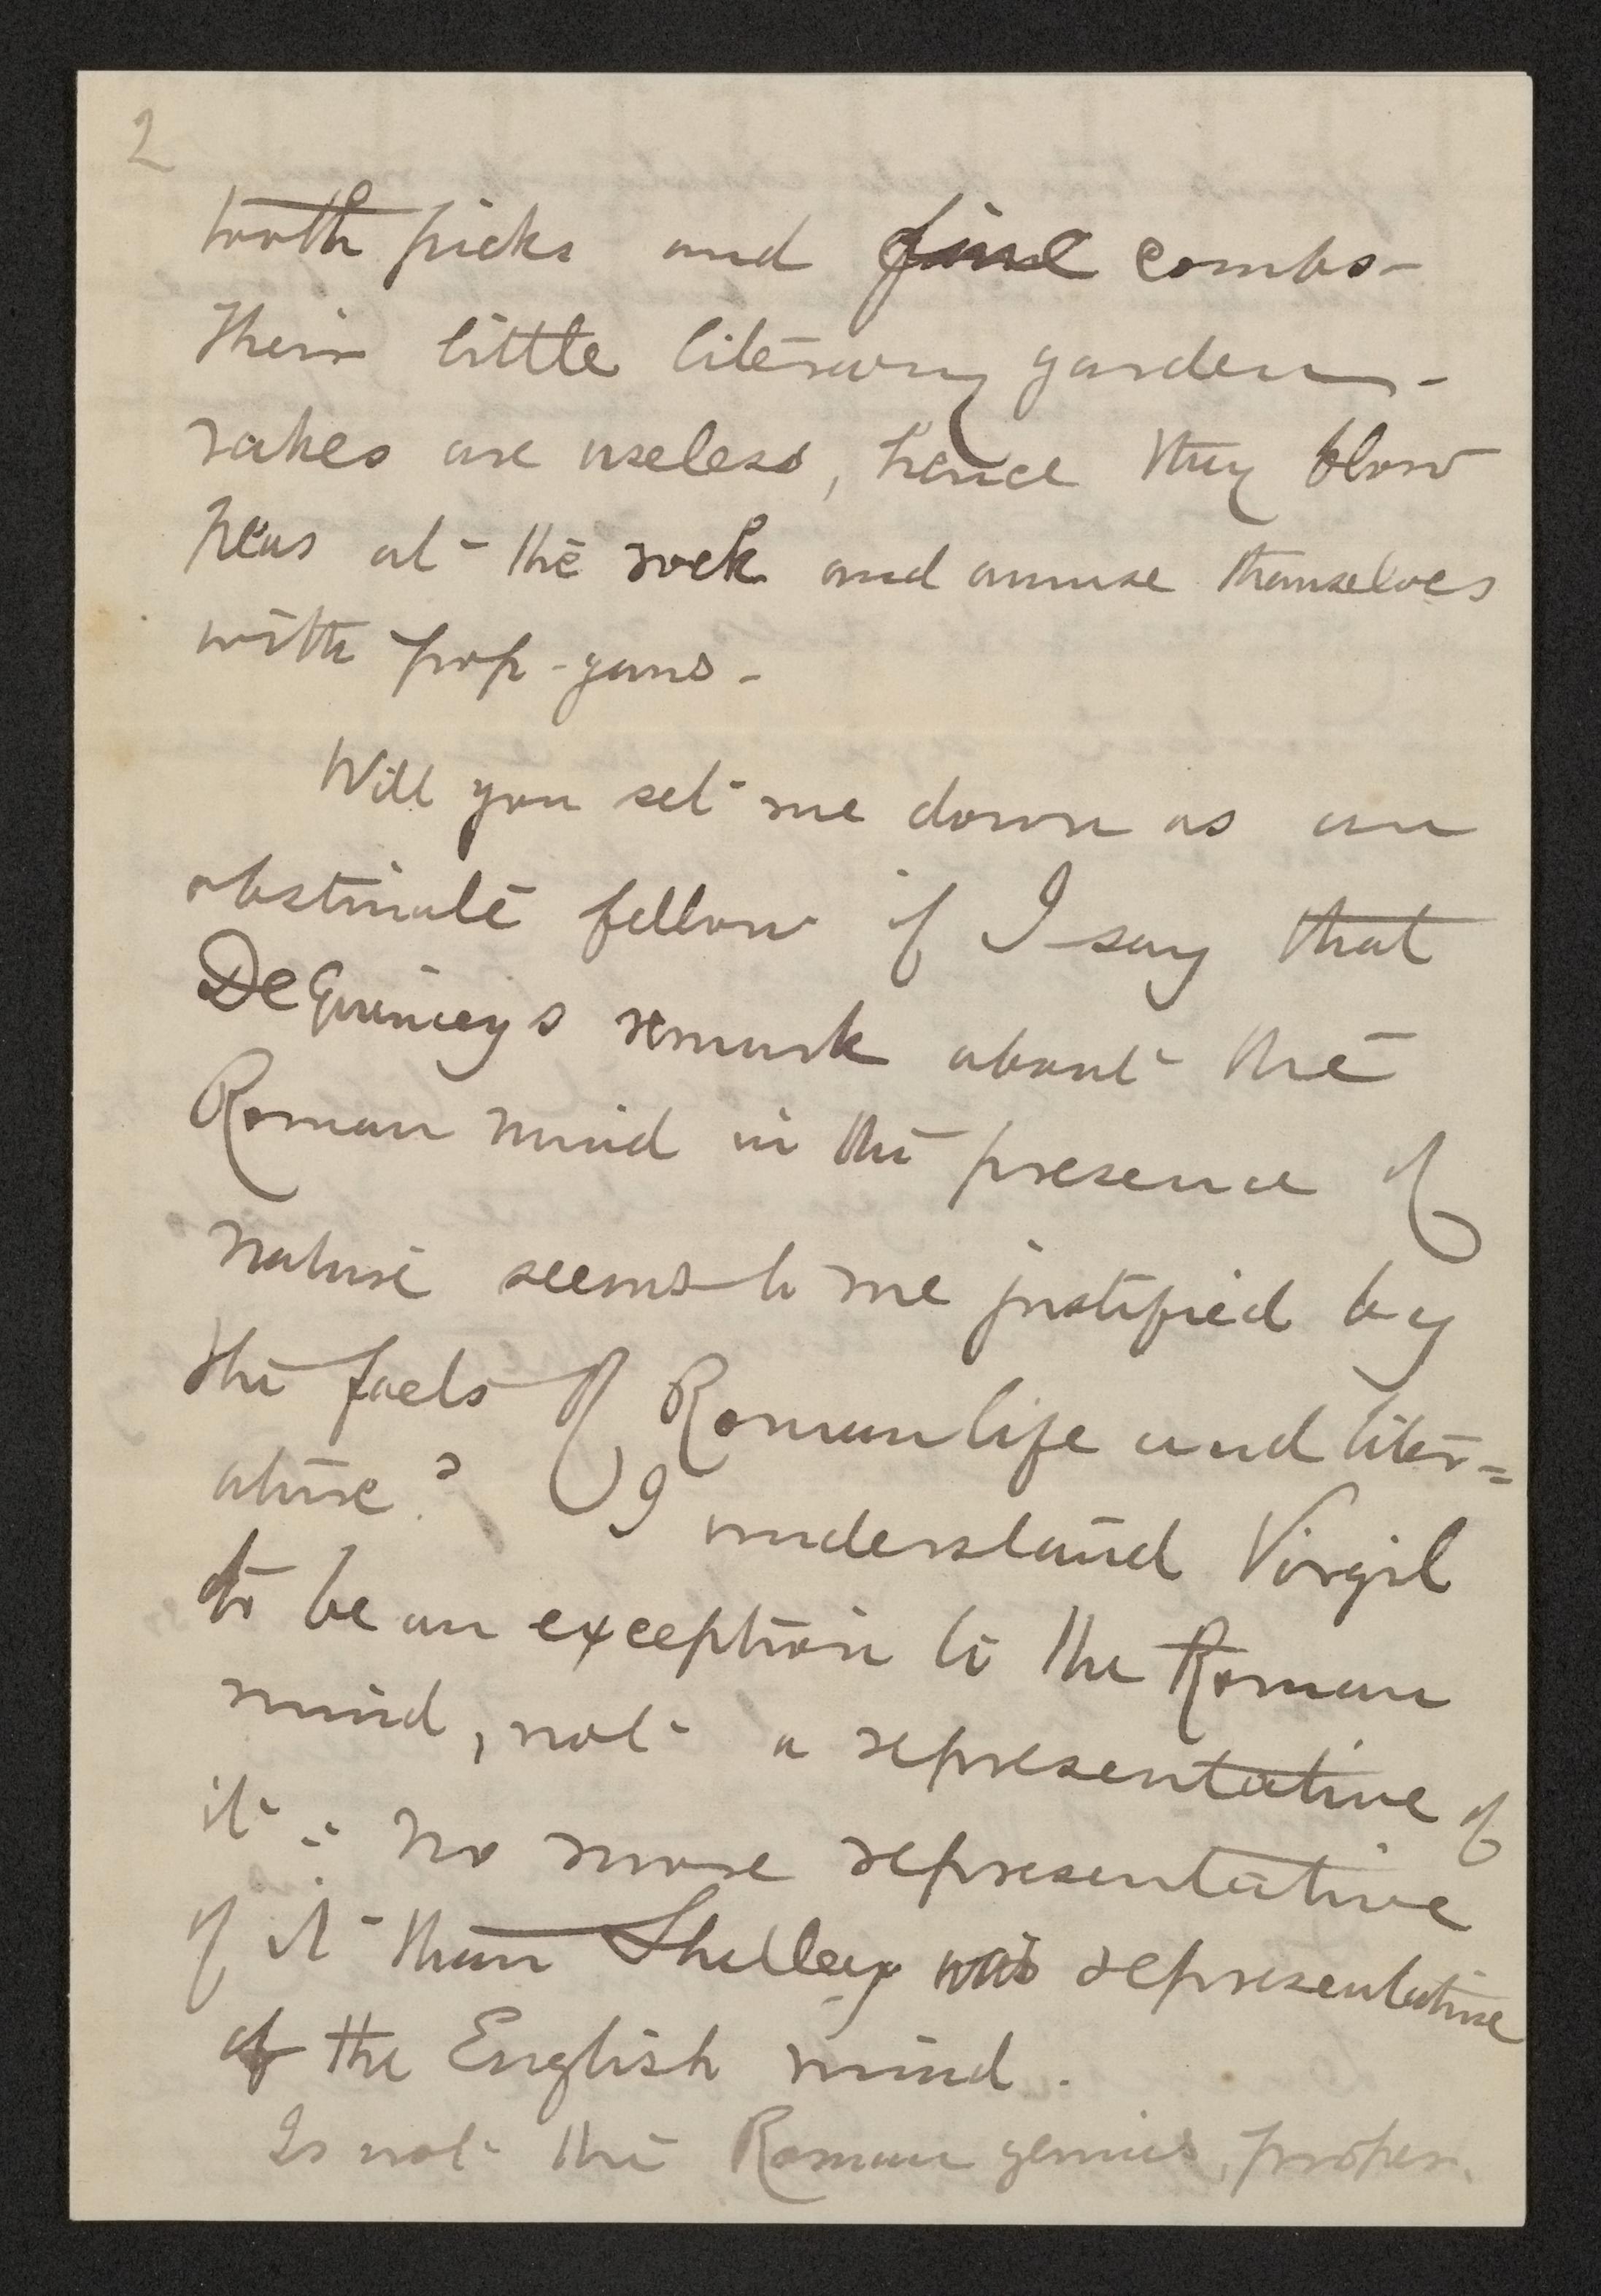 2
tooth picks and fine combs -
Their little literary garden -
rakes are useless, hence they blow
peas at the rock and amuse themselves
with pop-guns -
Will you set me down as an
obstinate fellow if I say that
DeQuinceys remark about the
Roman mind in the presence of
nature seems to me justified by
the facts of Roman life and liter=
ature? I understand Virgil
to be an exception to the Roman
mind, not a representative of
it : no more representative
of it than Shelley was representative
of the English mind.
Is not the Roman genius, proper,